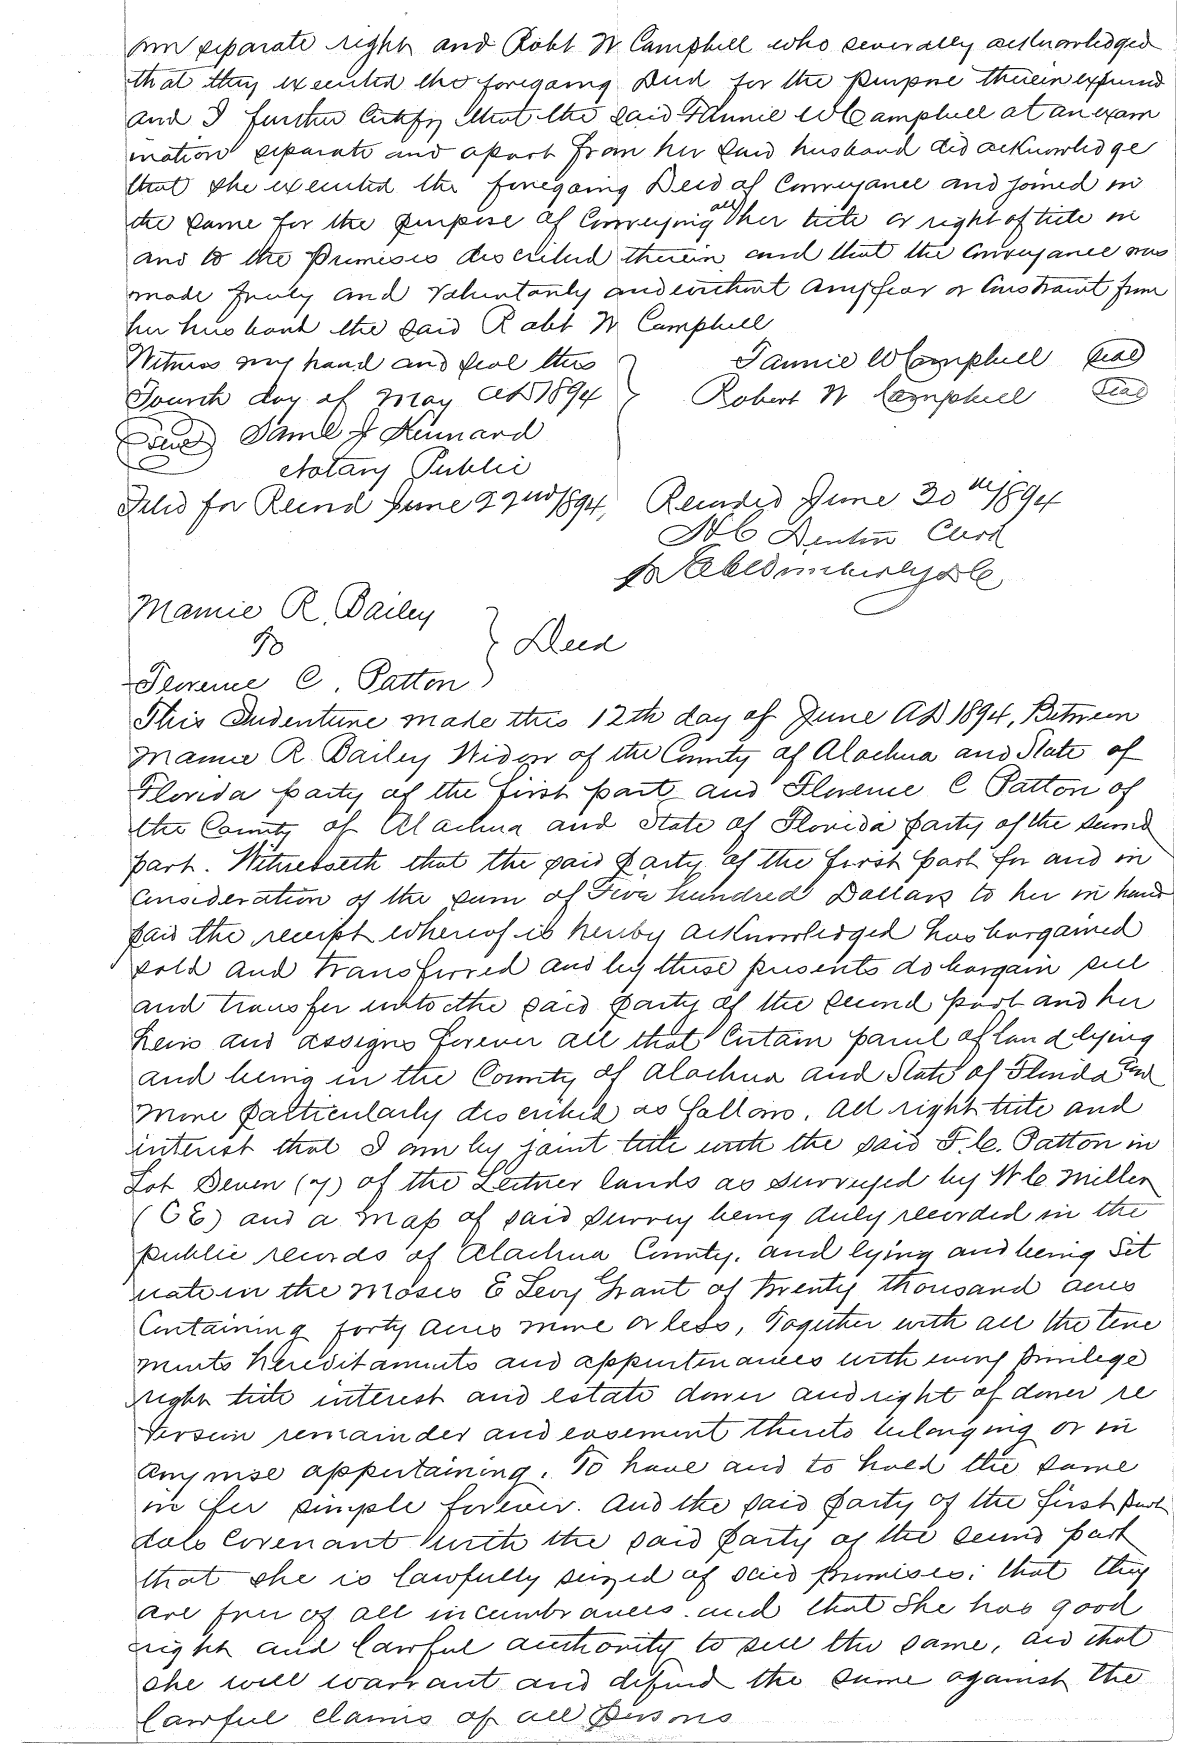 own separate right and Robt W Campbell who severally acknowledged
that they executed the foregoing Deed for the purpose therein expressed
and I further Certify that the said Fannie W Campbell at an exam
ination separate and apart from her said husband did acknowledge
that she executed the foregoing Deed of Conveyance and joined in
the same for the purpose of Conveying all her title or right of title in
and to the Premises described therein and that the Conveyance was
made freely and voluntarily and without any fear or Constraint from
her husband the said Robt W Campbell
Witness my hand and seal this
Fourth day of May AD 1894
Fannie W Campbell Seal
Robert W Campbell Seal
Seal Saml J Kennard
Notary Public
Filed for Record June 22nd 1894,
Recorded June 30th 1894
H C Denton Clerk
Mamie R. Bailey
To
Florence C. Patton
Deed
This Indenture made this 12th day of June AD 1894, Between
Mamie R. Bailey Widow of the County of Alachua and State of
Florida party of the first part and Florence C Patton of
the County of Alachua and State of Florida party of the second
part. Witnesseth that the said party of the first part for and in
Consideration of the sum of Five hundred Dollars to her in hand
paid the receipt whereof is hereby acknowledged has bargained
sold and transferred and by these presents do bargain sell
and transfer unto the said party of the second part and her
heirs and assigns forever all that Certain parcel of land lying
and being in the County of Alachua and State of Florida and
more particularly described as follows. All right title and
interest that I own by joint title with the said F. C. Patton in
Lot Seven (7) of the Leitner lands as surveyed by W C Miller
(C E) and a map of said survey being duly recorded in the
public records of Alachua County. and lying and being Sit
uate in the Moses E Levy Grant of twenty thousand acres
Containing forty acres more or less, Together with all the tene
ments hereditaments and appurtenances with every privilege
right title interest and estate dower and right of dower re
version remainder and easement thereto belonging or in
any wise appertaining. To have and to hold the same
in fee simple forever. And the said party of the first part
doth Covenant with the said party of the second part
that she is lawfully seized of said premises; that they
are free of all incumbrances. and that She has good
right and lawful authority to sell the same, and that
she will warrant and defend the same against the
lawful claims of all Persons